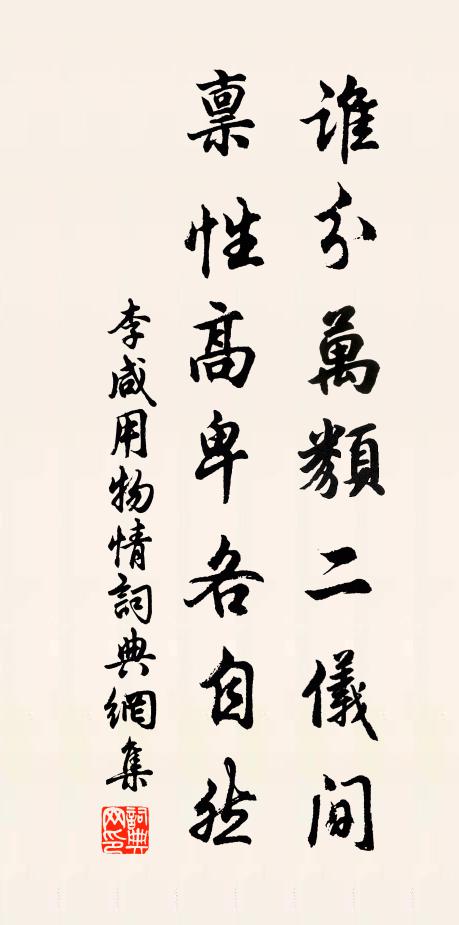 誰分萬類二儀間
稟性高卑各自然
李咸用物情詞典網集
詞典網印